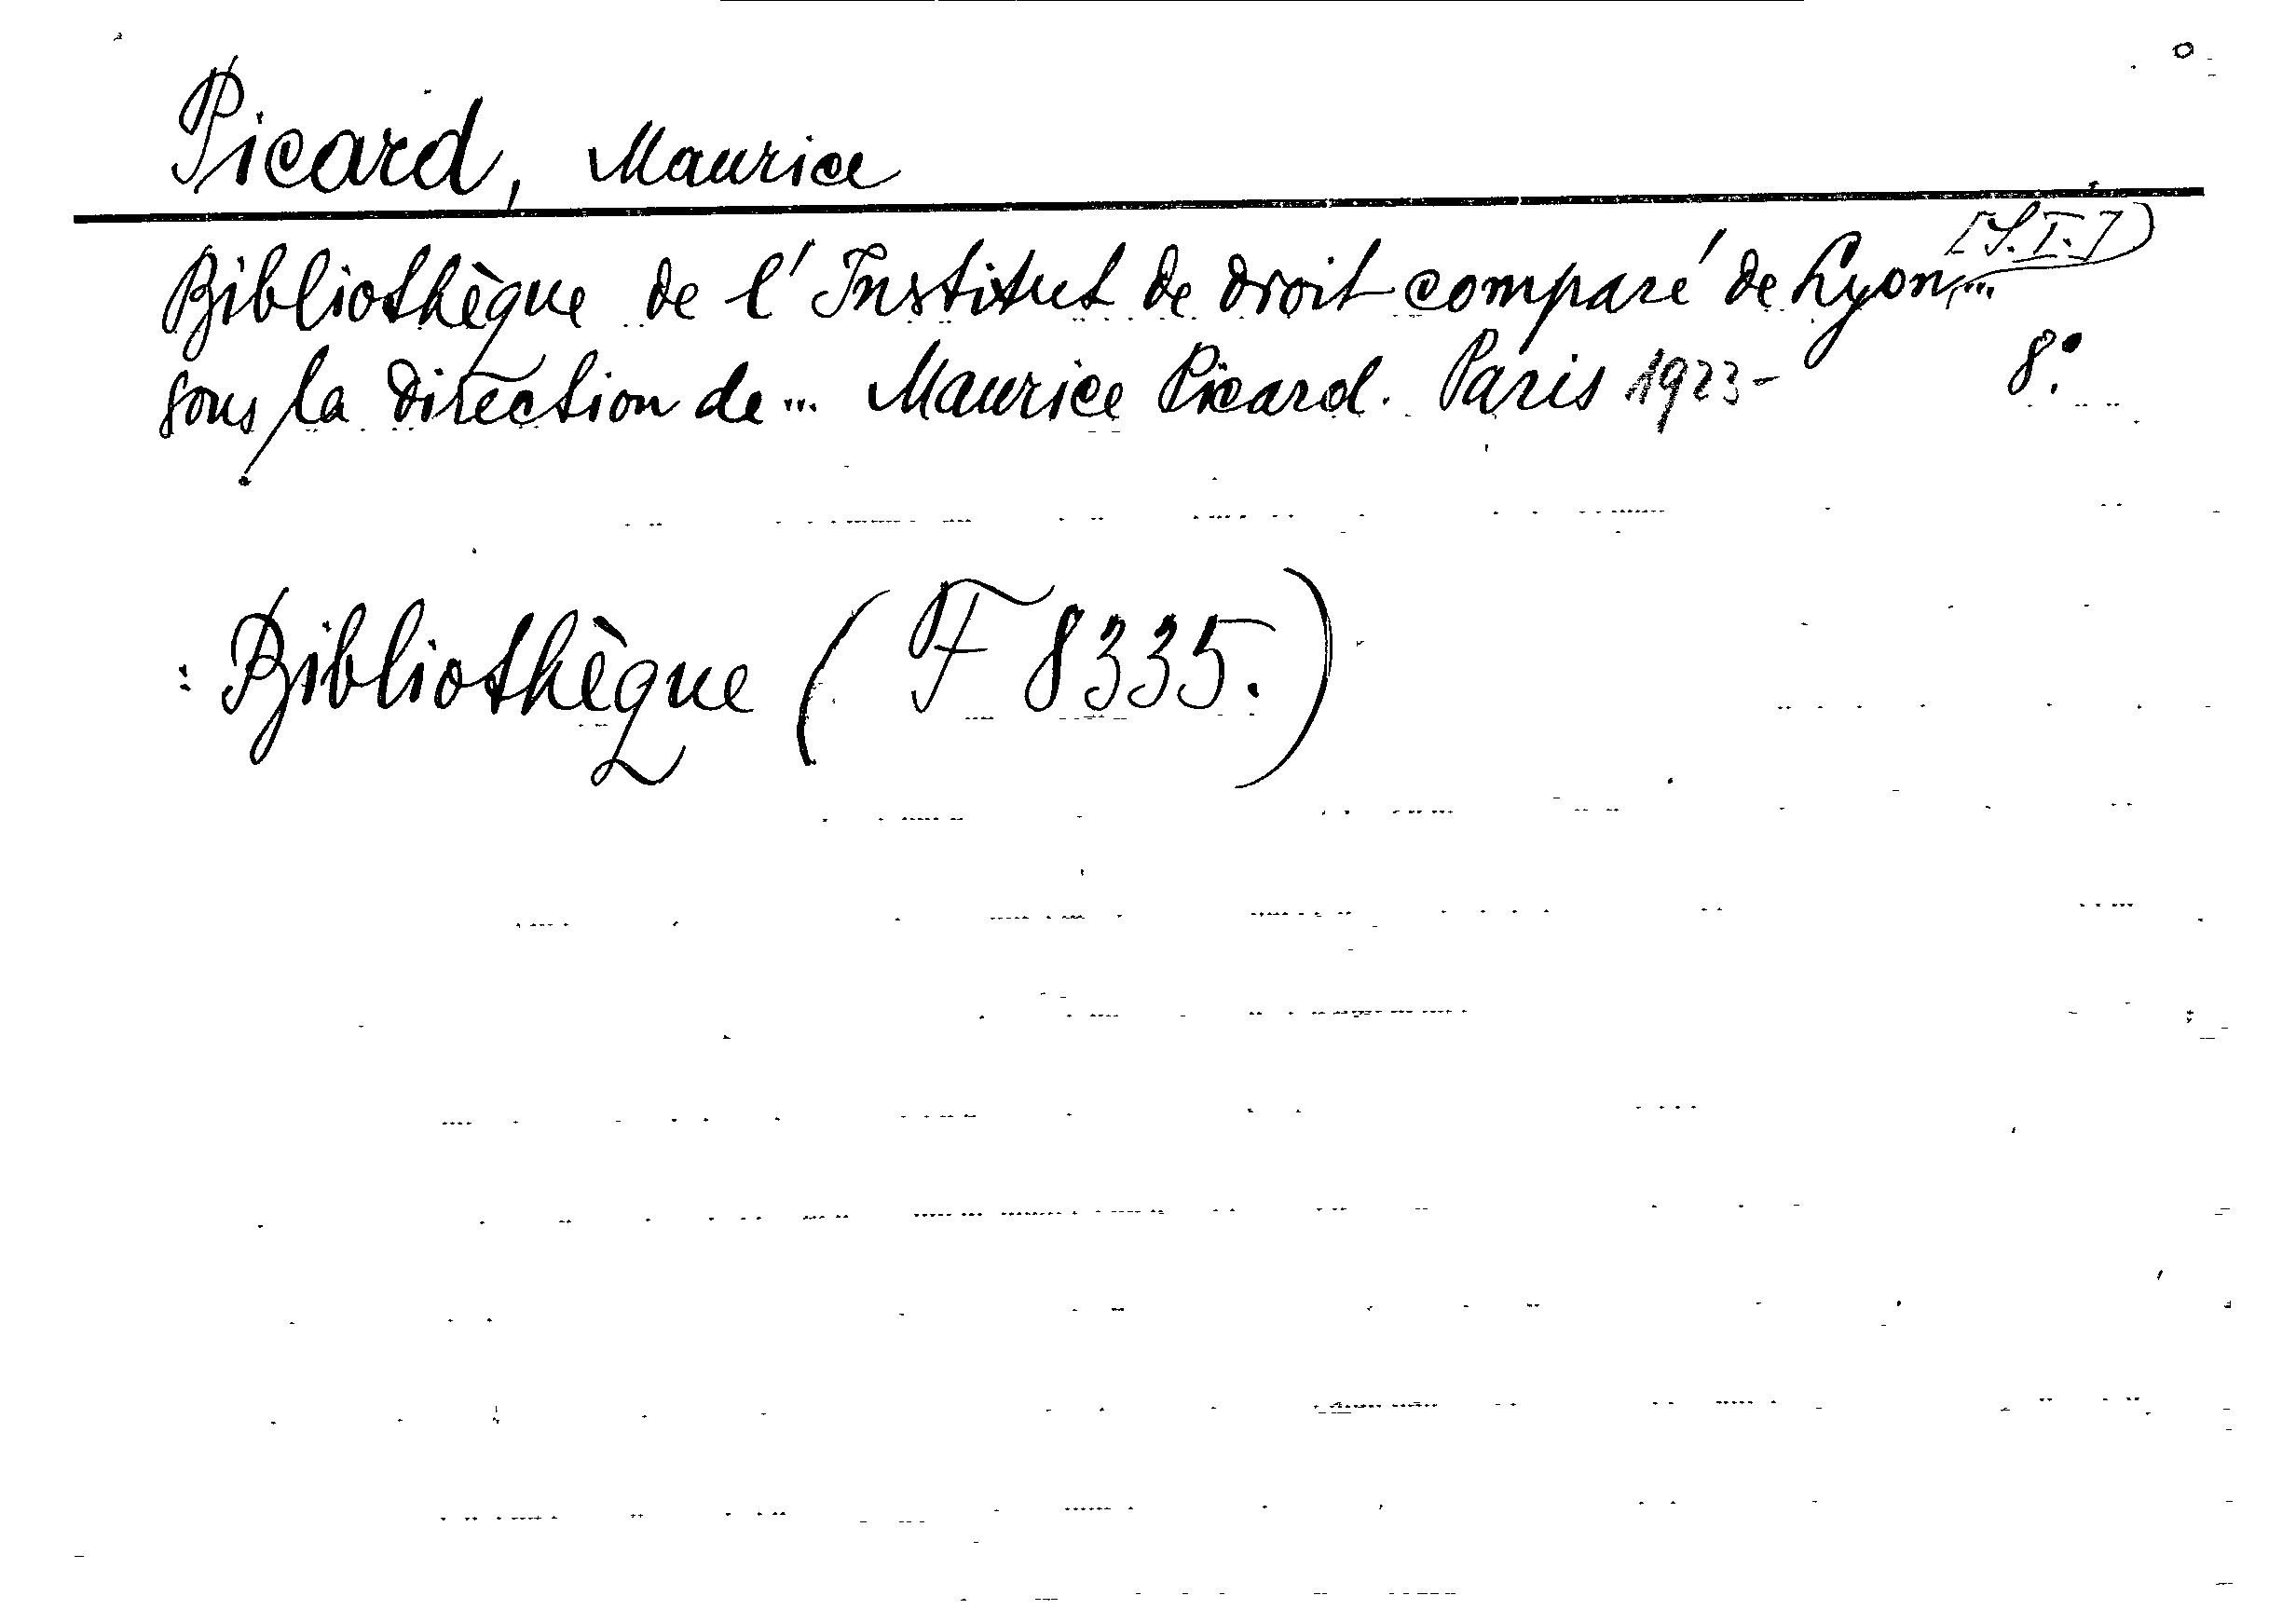 Picard, Maurice
Bibliothèque de l'Institut de droit comparé de Lyon, ... [S.I.]
sous la direction de ... Maurice Picard. Paris 1923- 8°.
: Bibliothèque (F 8335.)